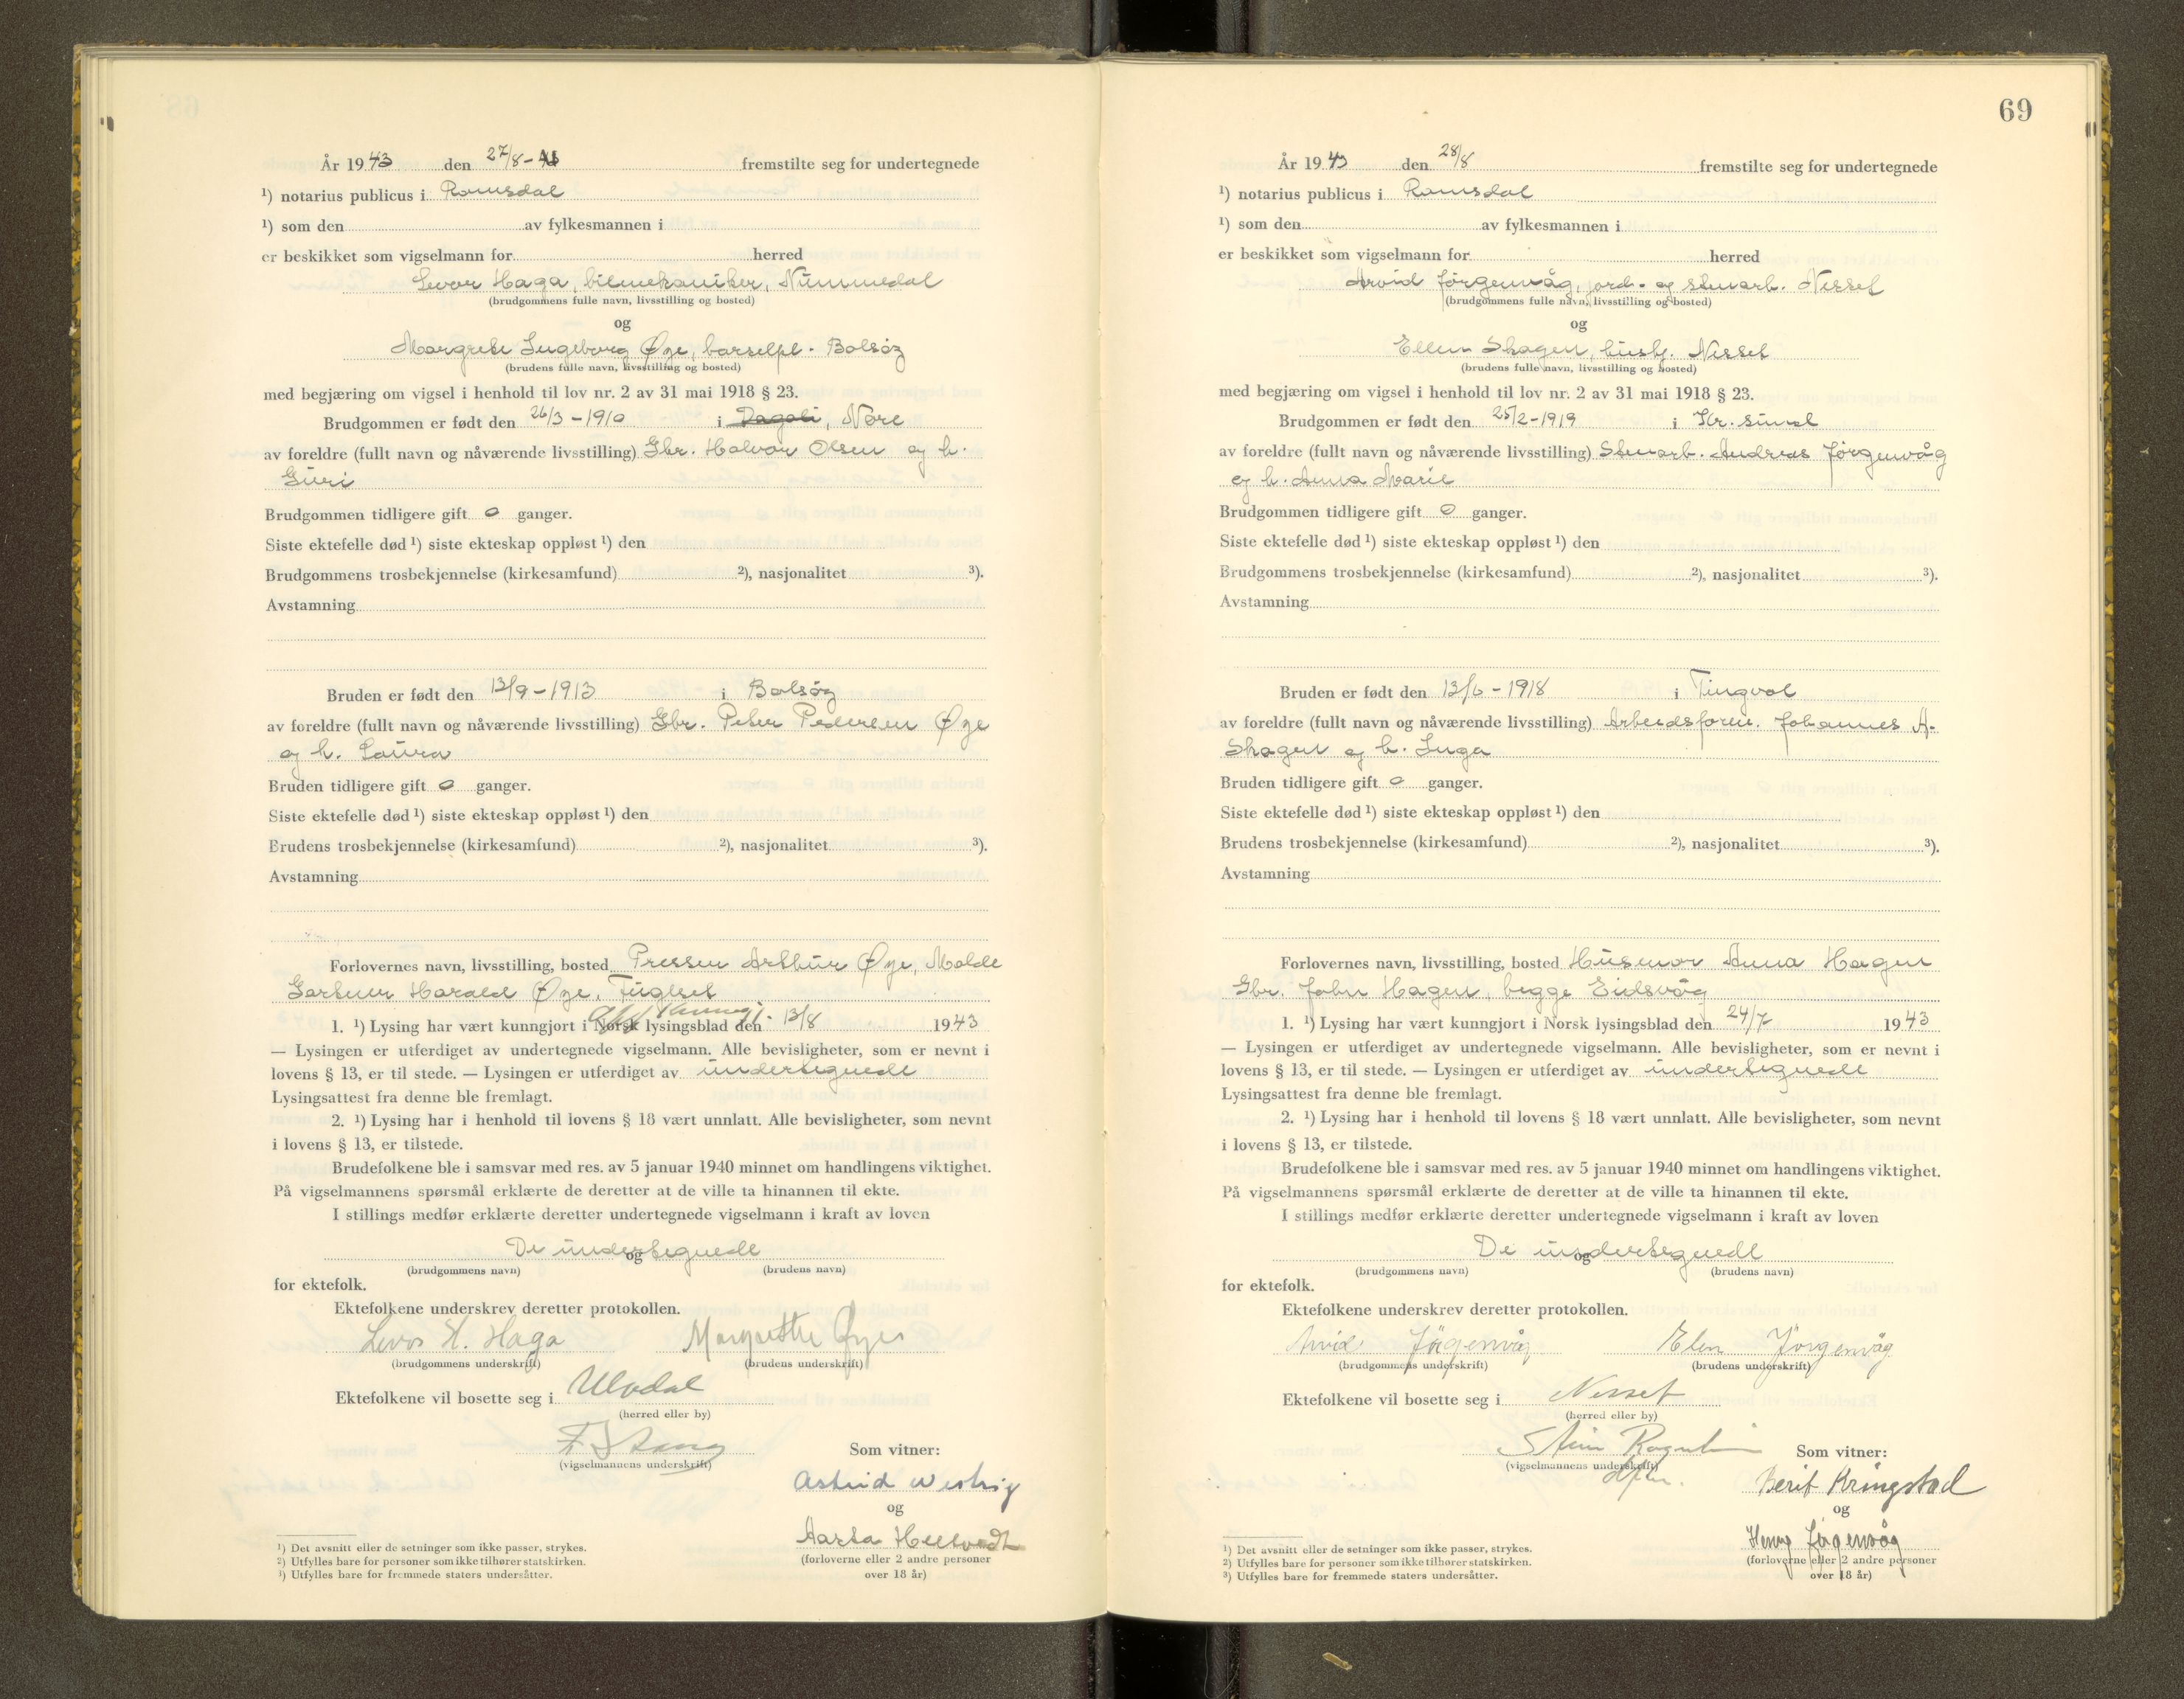 År 19 43 den 27/8 - fremstilte seg for undertegnede
¹) notarius publicus i Romsdal
¹) som den av fylkesmannen i
er beskikket som vigselmann for herred
Levor Haga, bilmekaniker, Nummedal
(brudgommens fulle navn, livsstilling og bosted)
og
Margrete Ingeborg Øye, barselpl. Bolsøy
(brudens fulle navn, livsstilling og bosted)
med begjæring om vigsel i henhold til lov nr. 2 av 31 mai 1918 § 23.
Brudgommen er født den 26/3 - 1910 i Dagali, Nore
av foreldre (fullt navn og nåværende livsstilling) Gbr. Halvor Olsen og h.
Guri
Brudgommen tidligere gift 0 ganger.
Siste ektefelle død ¹) siste ekteskap oppløst ¹) den
Brudgommens trosbekjennelse (kirkesamfund) ²), nasjonalitet ³).
Avstamning
Bruden er født den 13/9 - 1913 i Bolsøy
av foreldre (fullt navn og nåværende livsstilling) Gbr. Peter Pedersen Øye
og h. Laura
Bruden tidligere gift 0 ganger.
Siste ektefelle død ¹) siste ekteskap oppløst ¹) den
Brudens trosbekjennelse (kirkesamfund) ²), nasjonalitet ³).
Avstamning
Forlovernes navn, livsstilling, bosted Presser Arthur Øye, Molde
Gartner Harald Øye, Fuglset
1. ¹) Lysing har vært kunngjort i Norsk lysingsblad den 13/8 19 43
— Lysingen er utferdiget av undertegnede vigselmann. Alle bevisligheter, som er nevnt i
lovens § 13, er til stede. — Lysingen er utferdiget av undertegnede
Lysingsattest fra denne ble fremlagt.
2. ¹) Lysing har i henhold til lovens § 18 vært unnlatt. Alle bevisligheter, som nevnt
i lovens § 13, er tilstede.
Brudefolkene ble i samsvar med res. av 5 januar 1940 minnet om handlingens viktighet.
På vigselmannens spørsmål erklærte de deretter at de ville ta hinannen til ekte.
I stillings medfør erklærte deretter undertegnede vigselmann i kraft av loven
De undertegnede
og
(brudgommens navn) (brudens navn)
for ektefolk.
Ektefolkene underskrev deretter protokollen.
Levor H. Haga Margrethe Øye
(brudgommens underskrift) (brudens underskrift)
Ektefolkene vil bosette seg i Uvdal
(herred eller by)
(vigselmannens underskrift) Som vitner:
Astrid
og
Aasta
(forloverne eller 2 andre personer
over 18 år)
¹) Det avsnitt eller de setninger som ikke passer, strykes.
²) Utfylles bare for personer som ikke tilhører statskirken.
¹) Utfylles bare for fremmede staters undersåtter.
69
År 19 43 den 28/8 fremstilte seg for undertegnede
¹) notarius publicus i Romsdal
¹) som den av fylkesmannen i
er beskikket som vigselmann for herred
Arvid Jörgenvåg, jord- og stenarb. Nesset
(brudgommens fulle navn, livsstilling og bosted)
og
Ellen Skagen, hush. Nesset
(brudens fulle navn, livsstilling og bosted)
med begjæring om vigsel i henhold til lov nr. 2 av 31 mai 1918 § 23.
Brudgommen er født den 25/2 - 1919 i Kr.sund
av foreldre (fullt navn og nåværende livsstilling) Stenarb. Andreas Jörgenvåg
og h. Anna Marie
Brudgommen tidligere gift 0 ganger.
Siste ektefelle død ¹) siste ekteskap oppløst ¹) den
Brudgommens trosbekjennelse (kirkesamfund) ²), nasjonalitet ³).
Avstamning
Bruden er født den 13/6 - 1918 i Tingvol
av foreldre (fullt navn og nåværende livsstilling) Arbeidsform. Johannes A.
Skagen og h. Inga
Bruden tidligere gift 0 ganger.
Siste ektefelle død ¹) siste ekteskap oppløst ¹) den
Brudens trosbekjennelse (kirkesamfund) ²), nasjonalitet ³).
Avstamning
Forlovernes navn, livsstilling, bosted Husmor Anna Hagen
Gbr. John Hagen, begge Eidsvåg
1. ¹) Lysing har vært kunngjort i Norsk lysingsblad den 24/7 19 43
— Lysingen er utferdiget av undertegnede vigselmann. Alle bevisligheter, som er nevnt i
lovens § 13, er til stede. — Lysingen er utferdiget av undertegnede
Lysingsattest fra denne ble fremlagt.
2. ¹) Lysing har i henhold til lovens § 18 vært unnlatt. Alle bevisligheter, som nevnt
i lovens § 13, er tilstede.
Brudefolkene ble i samsvar med res. av 5 januar 1940 minnet om handlingens viktighet.
På vigselmannens spørsmål erklærte de deretter at de ville ta hinannen til ekte.
I stillings medfør erklærte deretter undertegnede vigselmann i kraft av loven
De undertegnede
og
(brudgommens navn) (brudens navn)
for ektefolk.
Ektefolkene underskrev deretter protokollen.
Arvid Jörgenvåg Elen Jörgenvåg
(brudgommens underskrift) (brudens underskrift)
Ektefolkene vil bosette seg i Nesset
(herred eller by)
Stein
(vigselmannens underskrift) Som vitner:
Berit Kringstad
og
Henry Jörgenvåg
(forloverne eller 2 andre personer
over 18 år)
¹) Det avsnitt eller de setninger som ikke passer, strykes.
²) Utfylles bare for personer som ikke tilhører statskirken.
³) Utfylles bare for fremmede staters undersåtter.